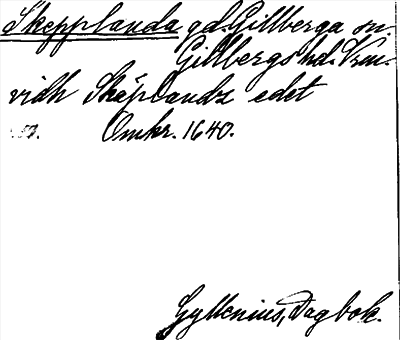 Skepplanda gd. Gillberga sn.
Gillbergs hd. Vrm.
vidh Skäplandz edet
Omkr. 1640.
Gyllenius, Dagbok.